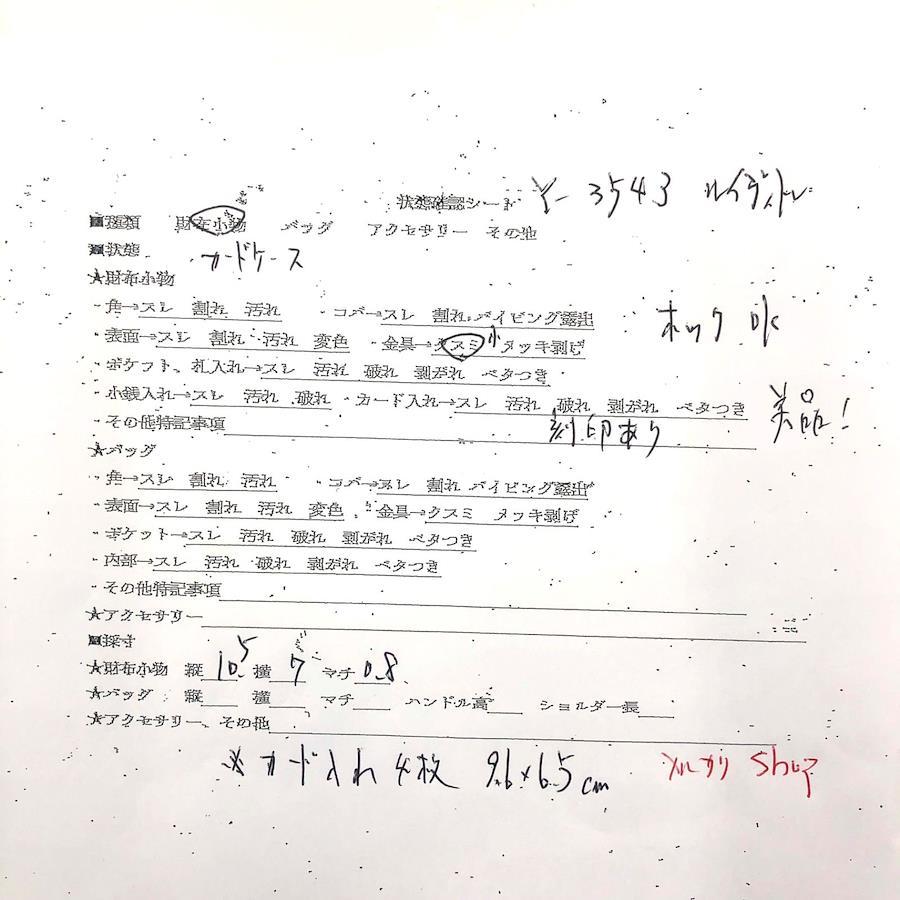 状態確認シート Y-3543 ルイヴィトン
■種類 財布小物 バッグ アクセサリー その他
■状態 カードケース
★財布小物
・角→スレ 割れ 汚れ ・コバ→スレ 割れ パイピング露出
ホック ok
・表面→スレ 割れ 汚れ 変色 ・金具→クスミ小 メッキ剥げ
・ポケット、札入れ→スレ 汚れ 破れ 剥がれ ベタつき
・小銭入れ→スレ 汚れ 破れ ・カード入れ→スレ 汚れ 破れ 剥がれ ベタつき
美品!
・その他特記事項 刻印あり
★バッグ
・角→スレ 割れ 汚れ ・コバ→スレ 割れ パイピング露出
・表面→スレ 割れ 汚れ 変色 ・金具→クスミ メッキ剥げ
・ポケット→スレ 汚れ 破れ 剥がれ ベタつき
・内部→スレ 汚れ 破れ 剥がれ ベタつき
・その他特記事項
★アクセサリー
■採寸
★財布小物 縦 10.5 横 7 マチ 0.8
★バッグ 縦 横 マチ ハンドル高 ショルダー長
★アクセサリー、その他
※カード入れ4枚 9.6×6.5cm メルカリShop